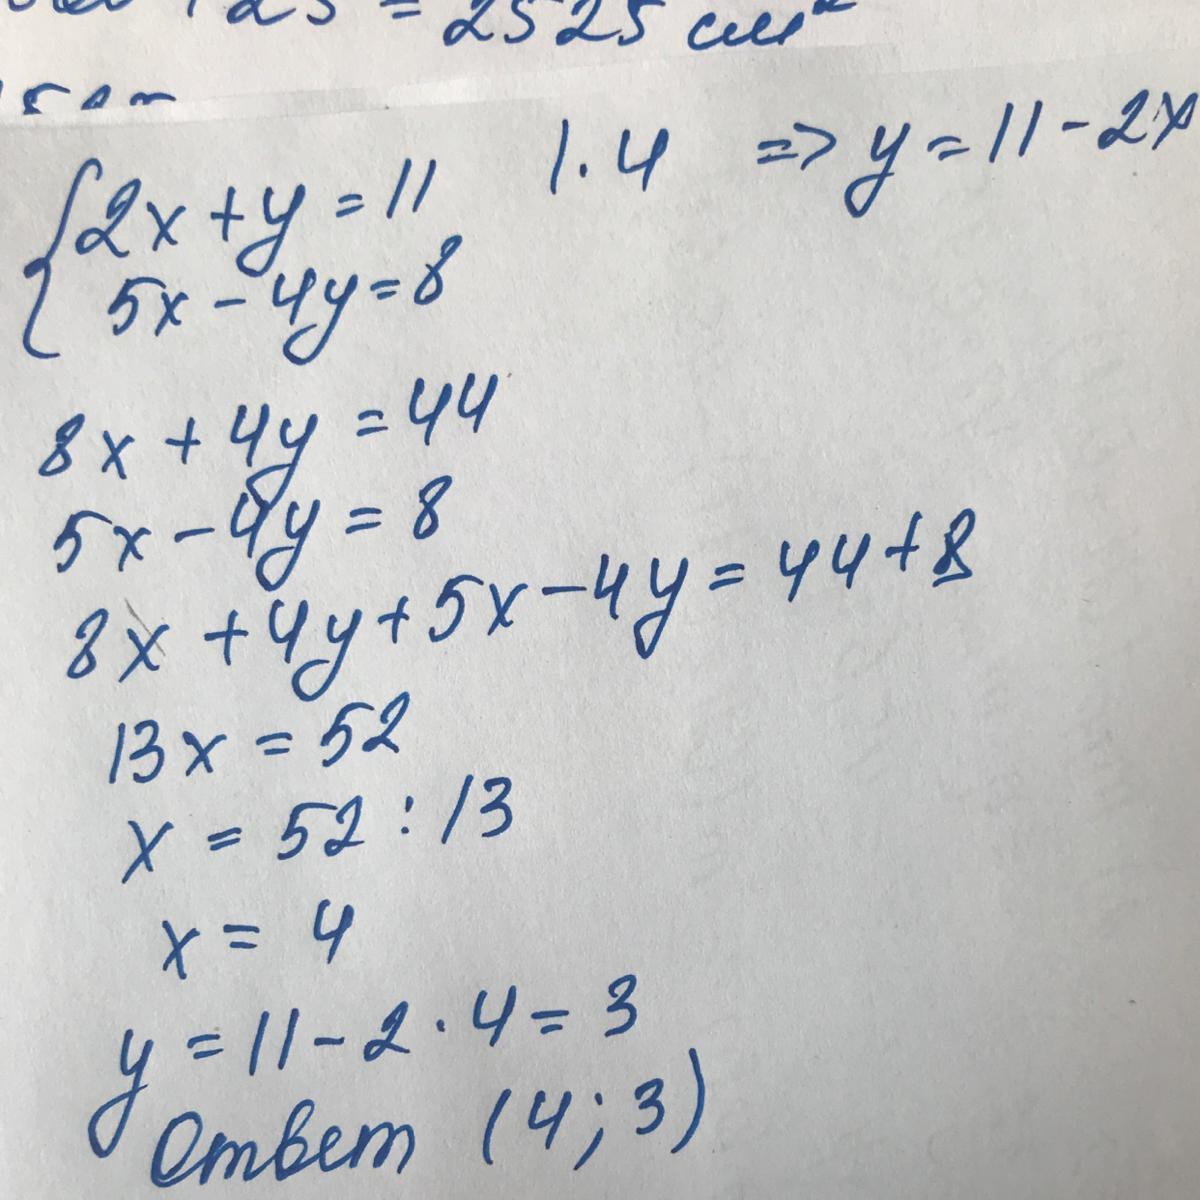 125 = 2525 см²
{2x + y = 11 | · 4 => y = 11 - 2x
5x - 4y = 8
8x + 4y = 44
5x - 4y = 8
8x + 4y + 5x - 4y = 44 + 8
13x = 52
x = 52 : 13
x = 4
y = 11 - 2 · 4 = 3
Ответ (4; 3)